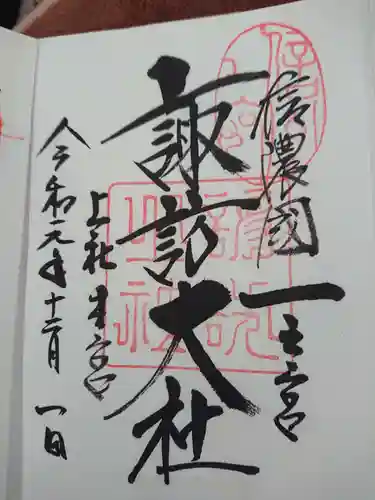 信濃國一之宮
諏訪大社
上社本宮
令和元年十二月一日